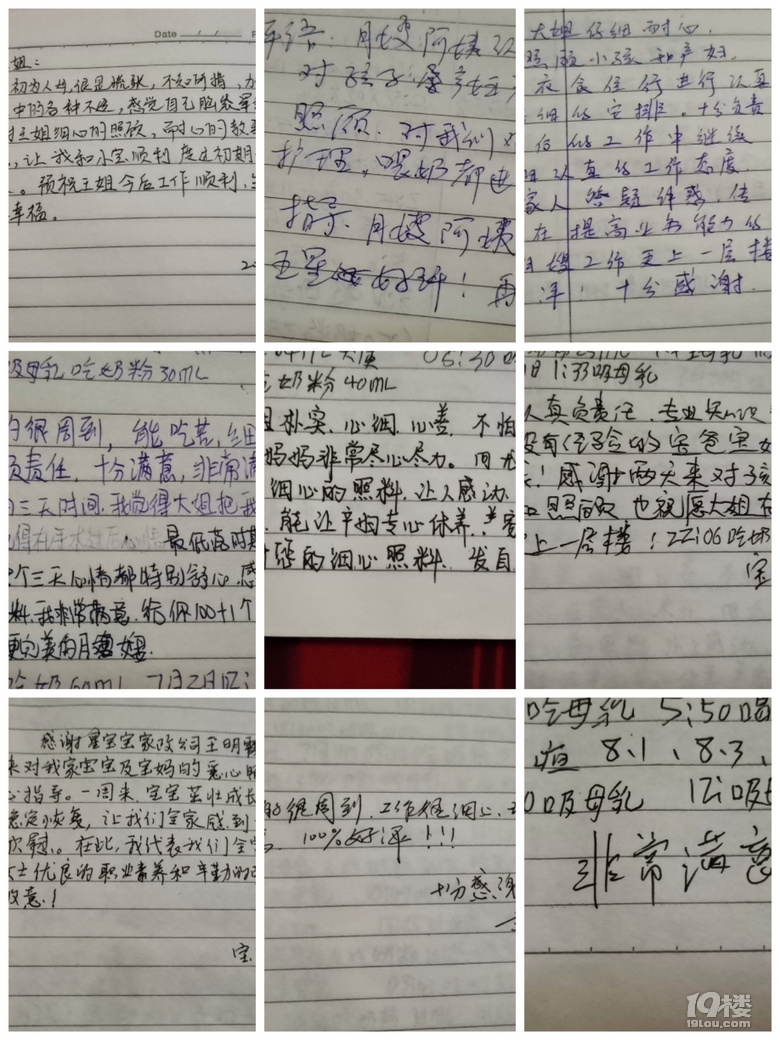 Date
姐：
初为人母,很是慌张，不知所措，
中的各种不适，感觉自己脑袋
王姐细心的照顾，耐心的教
，让我和小宝顺利度过初期
。预祝王姐今后工作顺利，
幸福。
评语：月嫂阿姨
对孩子
照顾．对我们
护理，喂奶都
指导．月嫂阿姨
五星好评！再
大姐仔细耐心．
照顾小孩和产妇．
衣食住行进行认真
细的安排。十分负责
后的工作中继续
认真的工作态度．
家人答疑
在提高业务能力的
月嫂工作更上一层楼
十分感谢．
吸母乳吃奶粉30ML
的很周到，能吃苦，细
负责任，十分满意，非常满
三天时间．我觉得大姐把我
最低落时期
个三天心情都特别舒心．感
料．我非常满意．给你100+1个
更完美的月嫂．
吃奶60mL 7月2日12:
06:30
吃奶粉40ML
且朴实．心细．心善．不怕
妈妈非常尽心尽力。
细心的照料．让人感动．
能让产妇专心休养．
的细心照料．发自
1:33吸母乳
认真负责任．专业知识
没有经验的宝爸宝妈
！感谢两天来对孩
照顾 也祝愿大姐在
上一层楼！22:06吃奶
宝
感谢星宝宝家政公司王明
来对我家宝宝及宝妈的悉心照
心指导。一周来，宝宝茁壮成长
稳定恢复，让我们全家感到
欣慰。在此，我代表我们全家
女士优良的职业素养和辛勤的
敬意！
宝
的很周到．工作很细心．
100%好评！！！
十分感谢
吃母乳 5:50喝
疸 8.1、8.3、
吸母乳 12:吸
非常满意
19楼
19lou.com